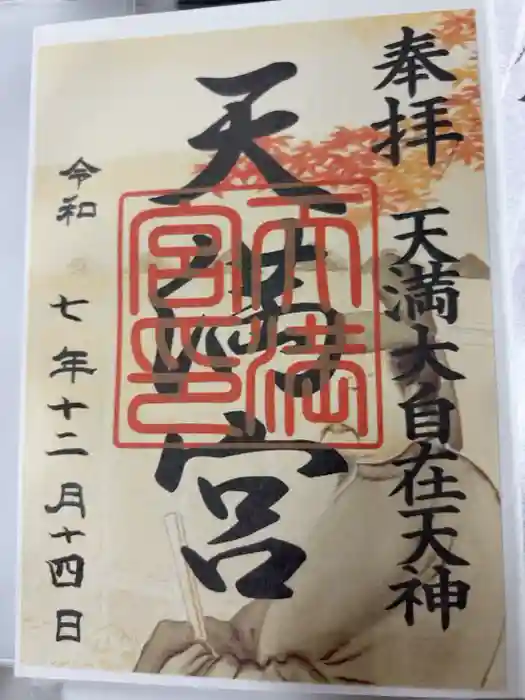 奉拝
天満大自在天神
天満宮
天満宮印
令和 七年十二月十四日